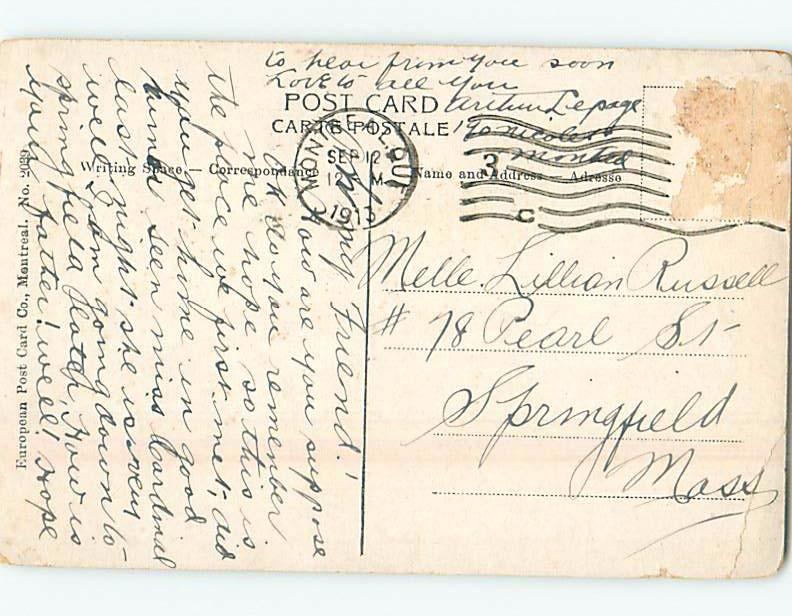 POST CARD
CARTE POSTALE
Writing Space — Correspondance
Name and Address — Adresse
European Post Card Co., Montreal. No. 2039
MONTREAL QUE
SEP 12
12 M
1913
3
C
Melle Lillian Russell
# 78 Pearl St-
Springfield
Mass
My Friend!
How are you suppose
OK Do you remember
me hope so this is
the place we first met, did
you get home in good
seen miss Cardinal
last night she is very
well I am going down to-
springfield How is
your father! well! Hope
to hear from you soon
Love to all you
Arthur Lepage
190